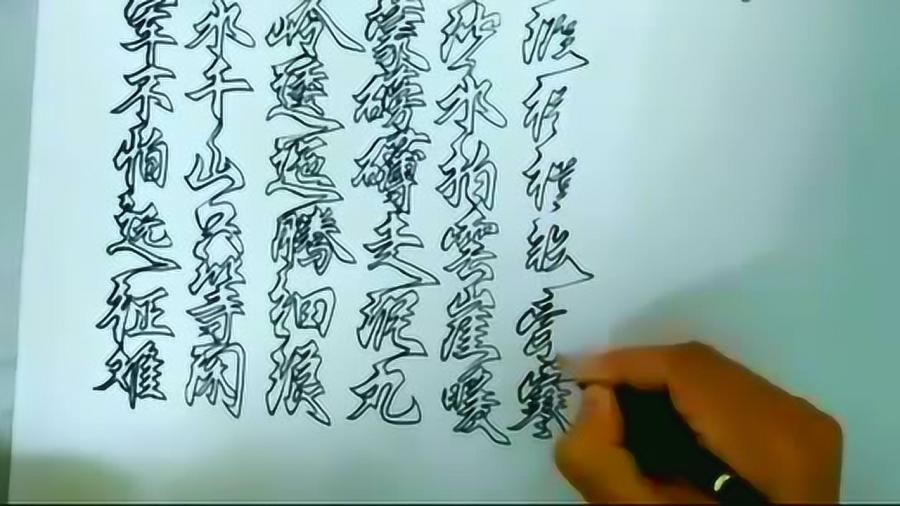 軍不怕远征难
水千山只等闲
岭逶迤腾细浪
蒙磅礴走泥丸
沙水拍雲崖暖
渡桥横铁索寒